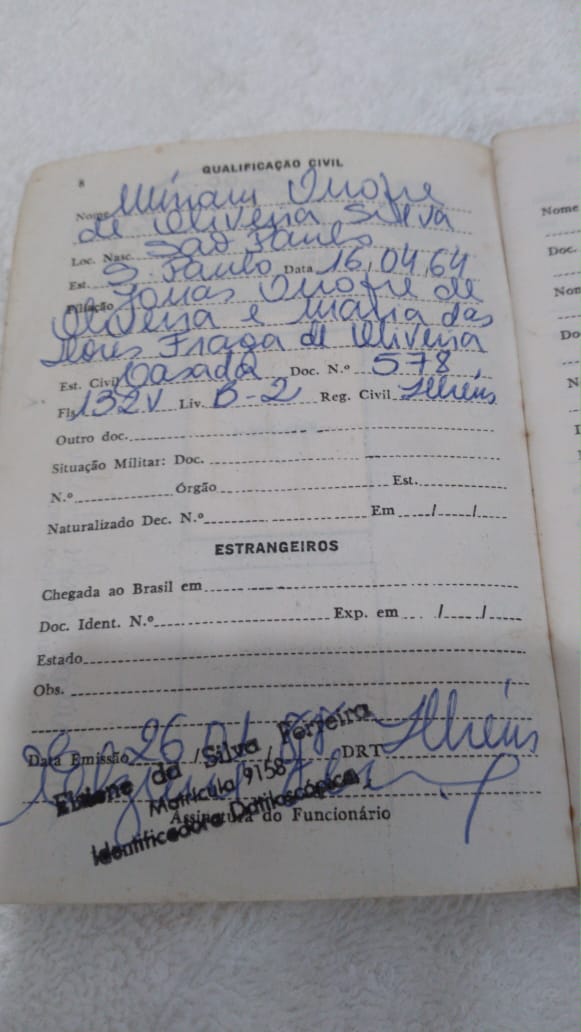 8
QUALIFICAÇÃO CIVIL
Nome Miriam Onofre
de Oliveira Silva
Loc. Nasc. São Paulo
Est. S. Paulo Data 16,04,64
Filiação Jonas Onofre de
Oliveira e Maria das
Dores Fraga de Oliveira
Est. Civil Casada Doc. N.º 578
Fls 132V Liv. B-2 Reg. Civil Ilhéus
Outro doc.
Situação Militar: Doc.
N.º Órgão Est.
Naturalizado Dec. N.º Em / /
ESTRANGEIROS
Chegada ao Brasil em
Doc. Ident. N.º Exp. em / /
Estado
Obs.
Data Emissão 26 / / DRT Ilhéus
Elsiene da Silva Ferreira
Matrícula 9158
Identificadora Datiloscópica
Assinatura do Funcionário
Nome
Doc.
Nom
Do
N